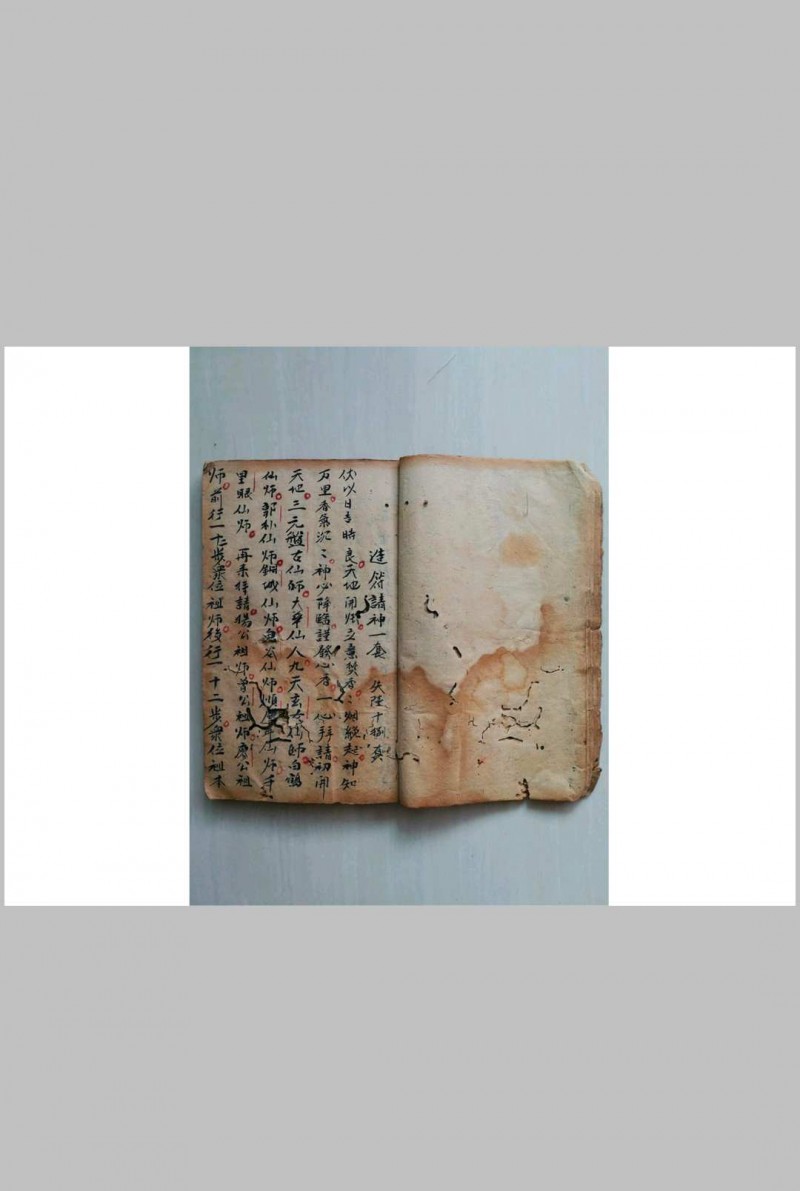 造符請神一套 失陸十捌頁
伏以日吉時良天地開 立案焚香々烟繞起神知
万里香氣沉々神必降臨謹發心香一心拜請初開
天地三元盤古仙師九天玄女仙師白鶴
仙師郭朴仙師 仙師 仙師 仙師千
里眼仙師再來拜請楊公祖師曾公祖師廖公祖
師前行一十二步衆位祖師後行一十二步衆位祖本